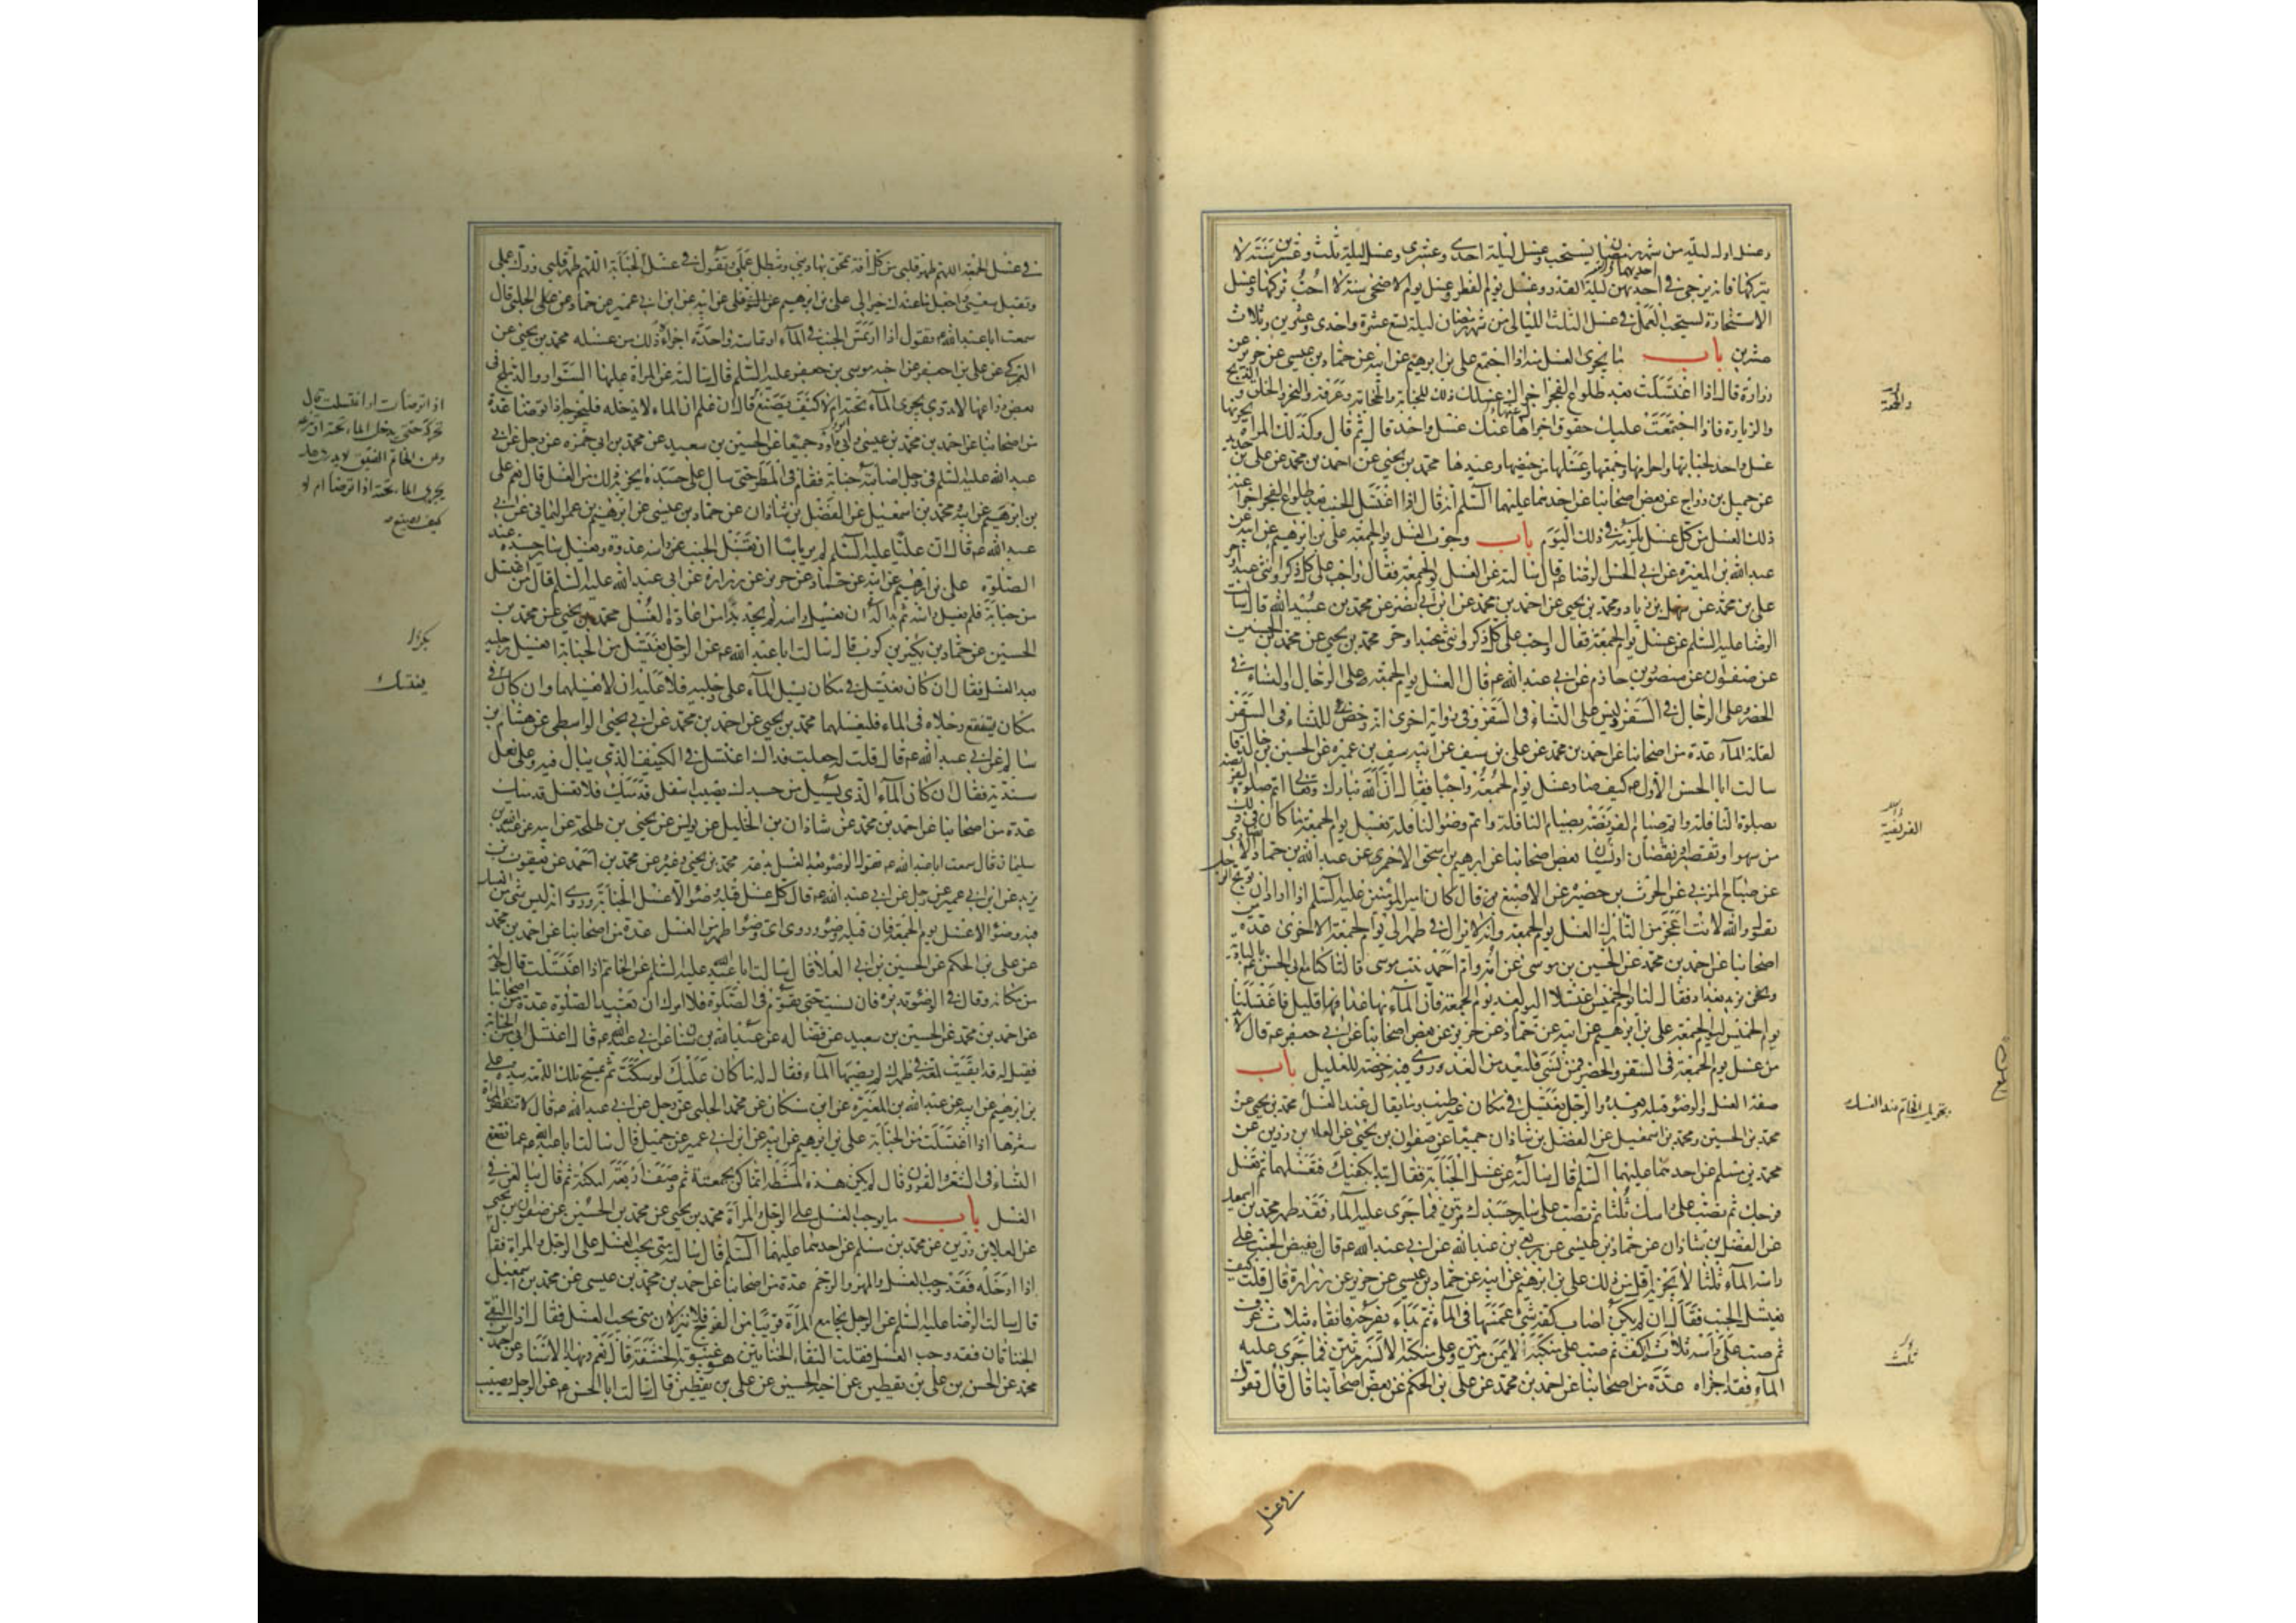 وغسل اول ليلة من شهر رمضان يستحب وغسل ليلة احدى وعشرين وغسل ليلة ثلث وعشرين سنة لا
يتركها فانه يرجى في احديهن ليلة القدر وغسل يوم الفطر وغسل يوم الاضحى سنة لا احب تركها وغسل
الاستخارة يستحب العمل في غسل الثلث الليالي من شهر رمضان ليلة تسع عشرة واحدى وعشرين وثلاث
عشرين باب ما يجزى الغسل منه اذا اجتمع علي بن ابرهيم عن ابيه عن حماد بن عيسى عن حريز عن
زرارة قال اذا اغتسلت بعد طلوع الفجر اجزاك غسلك ذلك للجنابة والحجامة وعرفة والنحر والحلق والذبح
والزيارة فاذا اجتمعت عليك حقوق اجزاها عنك غسل واحد قال ثم قال وكذلك المراة يجزيها
غسل واحد لجنابتها واحرامها وجمعتها وغسلها من حيضها وعيدها محمد بن يحيى عن احمد بن محمد عن علي بن حديد
عن جميل بن دراج عن بعض اصحابنا عن احدهما عليهما السلم انه قال اذا اغتسل الجنب بعد طلوع الفجر اجزا عنه
ذلك الغسل من كل غسل يلزمه في ذلك اليوم باب وجوب الغسل يوم الجمعة علي بن ابرهيم عن ابيه عن
عبد الله بن المغيرة عن ابي الحسن الرضا ع قال سالته عن الغسل يوم الجمعة فقال واجب على كل ذكر وانثى عبد او حر
علي بن محمد عن سهل بن زياد ومحمد بن يحيى عن احمد بن محمد عن ابن ابي نصر عن محمد بن عبيد الله قال سالت
الرضا عليه السلم عن غسل يوم الجمعة فقال واجب على كل ذكر وانثى عبد او حر محمد بن يحيى عن محمد بن الحسين
عن صفوان عن منصور بن حازم عن ابي عبد الله ع قال الغسل يوم الجمعة على الرجال والنساء في
الحضر وعلى الرجال في السفر وليس على النساء في السفر وفي رواية اخرى انه رخص للنساء في السفر
لقلة الماء عدة من اصحابنا عن احمد بن محمد عن علي بن سيف عن ابيه سيف بن عميرة عن الحسين بن خالد قال
سالت ابا الحسن الاول ع كيف صار غسل يوم الجمعة واجبا فقال ان الله تبارك وتعالى اتم صلوة الفريضة
بصلوة النافلة واتم صيام الفريضة بصيام النافلة واتم وضوء النافلة بغسل يوم الجمعة ما كان في ذلك
من سهو او تقصير او نقصان او نسيان بعض اصحابنا عن ابرهيم بن اسحق الاحمرى عن عبد الله بن حماد الانصاري
عن صباح المزني عن الحرث بن حضيرة عن الاصبغ قال كان امير المؤمنين عليه السلم اذا اراد ان يوبخ الرجل
يقول والله لانت اعجز من التارك الغسل يوم الجمعة وانه لا يزال في طهر الى يوم الجمعة الاخرى عدة من
اصحابنا عن احمد بن محمد عن الحسين بن موسى عن امه وام احمد بنت موسى قالتا كنا مع ابي الحسن ع بالبادية
ونحن نريد بغداد فقال لنا يوم الخميس اغتسلا اليوم لغد يوم الجمعة فان الماء بها غدا قليل فاغتسلنا
يوم الخميس ليوم الجمعة علي بن ابرهيم عن ابيه عن حماد عن حريز عن بعض اصحابنا عن ابي جعفر ع قال لابد
من غسل يوم الجمعة في السفر والحضر فمن نسي فليعد من الغد وروي فيه رخصة للعليل باب
صفة الغسل والوضوء قبله وبعده والرجل يغتسل في مكان غير طيب وما يقال عند الغسل محمد بن يحيى عن
محمد بن الحسين ومحمد بن اسمعيل عن الفضل بن شاذان جميعا عن صفوان بن يحيى عن العلا بن رزين عن
محمد بن مسلم عن احدهما عليهما السلم قال سالته عن غسل الجنابة فقال تبدا بكفيك فتغسلهما ثم تغسل
فرجك ثم تصب على راسك ثلثا ثم تصب على ساير جسدك مرتين فما جرى عليه الماء فقد طهر محمد بن اسمعيل
عن الفضل بن شاذان عن حماد بن عيسى عن ربعي بن عبد الله عن ابي عبد الله ع قال يفيض الجنب على
راسه الماء ثلثا لا يجزيه اقل من ذلك علي بن ابرهيم عن ابيه عن حماد بن عيسى عن حريز عن زرارة قال قلت كيف
يغتسل الجنب فقال ان لم يكن اصاب كفه شئ غمسها في الماء ثم بدا بفرجه فانقاه بثلاث غرف
ثم صب على راسه ثلاث اكف ثم صب على منكبه الايمن مرتين وعلى منكبه الايسر مرتين فما جرى عليه
الماء فقد اجزاه عدة من اصحابنا عن احمد بن محمد عن علي بن الحكم عن بعض اصحابنا قال قال تقول
والجمعة
الفريضة
بتحريك الخاتم عند الغسل
ثلث
في غسل
في غسل الجمعة اللهم طهر قلبي من كل آفة تمحق بها ديني وتبطل عملي وتقول في غسل الجنابة اللهم طهر قلبي وزك عملي
وتقبل سعيي واجعل ما عندك خيرا لي علي بن ابرهيم عن ابيه عن ابن ابي عمير عن حماد عن الحلبي قال
سمعت ابا عبد الله ع يقول اذا ارتمس الجنب في الماء ارتماسة واحدة اجزاه ذلك من غسله محمد بن يحيى عن
العمركي عن علي بن جعفر عن اخيه موسى بن جعفر عليه السلم قال سالته عن المراة عليها السوار والدملج في
بعض ذراعها لا تدري يجرى الماء تحته ام لا كيف تصنع قال ان علم ان الماء لا يدخله فليخرجه اذا توضا عدة
من اصحابنا عن احمد بن محمد بن عيسى وابي داود جميعا عن الحسين بن سعيد عن محمد بن ابي حمزة عن رجل عن ابي
عبد الله عليه السلم في رجل اصابته جنابة فقام في المطر حتى سال على جسده ايجزيه ذلك من الغسل قال نعم علي
بن ابرهيم عن ابيه ومحمد بن اسمعيل عن الفضل بن شاذان عن حماد بن عيسى عن ابرهيم بن عمر اليماني عن ابي
عبد الله ع قال ان عليا عليه السلم لم ير باسا ان يغسل الجنب راسه غدوة ويغسل ساير جسده عند
الصلوة علي بن ابرهيم عن ابيه عن حماد عن حريز عن زرارة عن ابي عبد الله عليه السلم قال من اغتسل
من جنابة فلم يغسل راسه ثم بدا له ان يغسل راسه لم يجد بدا من اعادة الغسل محمد بن يحيى عن محمد بن
الحسين عن حماد بن بكير بن كرب قال سالت ابا عبد الله ع عن الرجل يغتسل من الجنابة ايغسل رجليه
بعد الغسل فقال ان كان يغتسل في مكان يسيل الماء على رجليه فلا عليه ان لا يغسلهما وان كان في
مكان يستنقع رجلاه في الماء فليغسلهما محمد بن يحيى عن احمد بن محمد عن ابي يحيى الواسطي عن هشام بن
سالم عن ابي عبد الله ع قال قلت له جعلت فداك اغتسل في الكنيف الذي يبال فيه وعلى نعل
سندية فقال ان كان الماء الذي يسيل من جسدك يصيب اسفل قدميك فلا تغسل قدميك
عدة من اصحابنا عن احمد بن محمد عن شاذان بن الخليل عن يونس عن يحيى بن طلحة عن ابيه عن عبد الله بن
سليمان قال سمعت ابا عبد الله ع يقول الوضوء بعد الغسل بدعة محمد بن يحيى وغيره عن محمد بن احمد عن يعقوب بن
يزيد عن ابن ابي عمير عن رجل عن ابي عبد الله ع قال كل غسل قبله وضوء الا غسل الجنابة وروي انه ليس شئ من الغسل
فيه وضوء الا غسل يوم الجمعة فان قبله وضوء وروى اي وضوء اطهر من الغسل عدة من اصحابنا عن احمد بن محمد
عن علي بن الحكم عن الحسين بن ابي العلا قال سالت ابا عبد الله عليه السلم عن الخاتم اذا اغتسلت قال حوله
من مكانه وقال في الوضوء تديره فان نسيت حتى تقوم في الصلوة فلا امرك ان تعيد الصلوة عدة من اصحابنا
عن احمد بن محمد عن الحسين بن سعيد عن فضالة عن عبد الله بن سنان عن ابي عبد الله ع قال اغتسل ابي من الجنابة
فقيل له قد ابقيت لمعة في ظهرك لم يصبها الماء فقال له ما كان عليك لو سكت ثم مسح تلك اللمعة بيده علي
بن ابرهيم عن ابيه عن عبد الله بن المغيرة عن ابن مسكان عن محمد الحلبي عن رجل عن ابي عبد الله ع قال لا تنقض المراة
شعرها اذا اغتسلت من الجنابة علي بن ابرهيم عن ابيه عن ابن ابي عمير عن جميل قال سالت ابا عبد الله ع عما تصنع
النساء في الشعر والقرون قال لم يكن هذه المشطة انما كن يجمعنه ثم وصف اربعة امكنة ثم قال يبالغن في
الغسل باب ما يوجب الغسل على الرجل والمراة محمد بن يحيى عن محمد بن الحسين عن صفوان بن يحيى
عن العلا بن رزين عن محمد بن مسلم عن احدهما عليهما السلم قال سالته متى يجب الغسل على الرجل والمراة فقال
اذا ادخله فقد وجب الغسل والمهر والرجم عدة من اصحابنا عن احمد بن محمد بن عيسى عن محمد بن اسمعيل
قال سالت الرضا عليه السلم عن الرجل يجامع المراة قريبا من الفرج فلا ينزلان متى يجب الغسل فقال اذا التقى
الختانان فقد وجب الغسل فقلت التقاء الختانين هو غيبوبة الحشفة قال نعم وبهذا الاسناد عن احمد بن
محمد عن الحسن بن علي بن يقطين عن اخيه الحسين عن علي بن يقطين قال سالت ابا الحسن ع عن الرجل يصيب
اذا توضأت او اغتسلت قال
تحركه حتى يدخل الماء تحته او تنزعه
وعن الخاتم الضيق لا يدرى هل
يجري الماء تحته اذا توضأ ام لا
كيف يصنع
بكرا
يغتسل